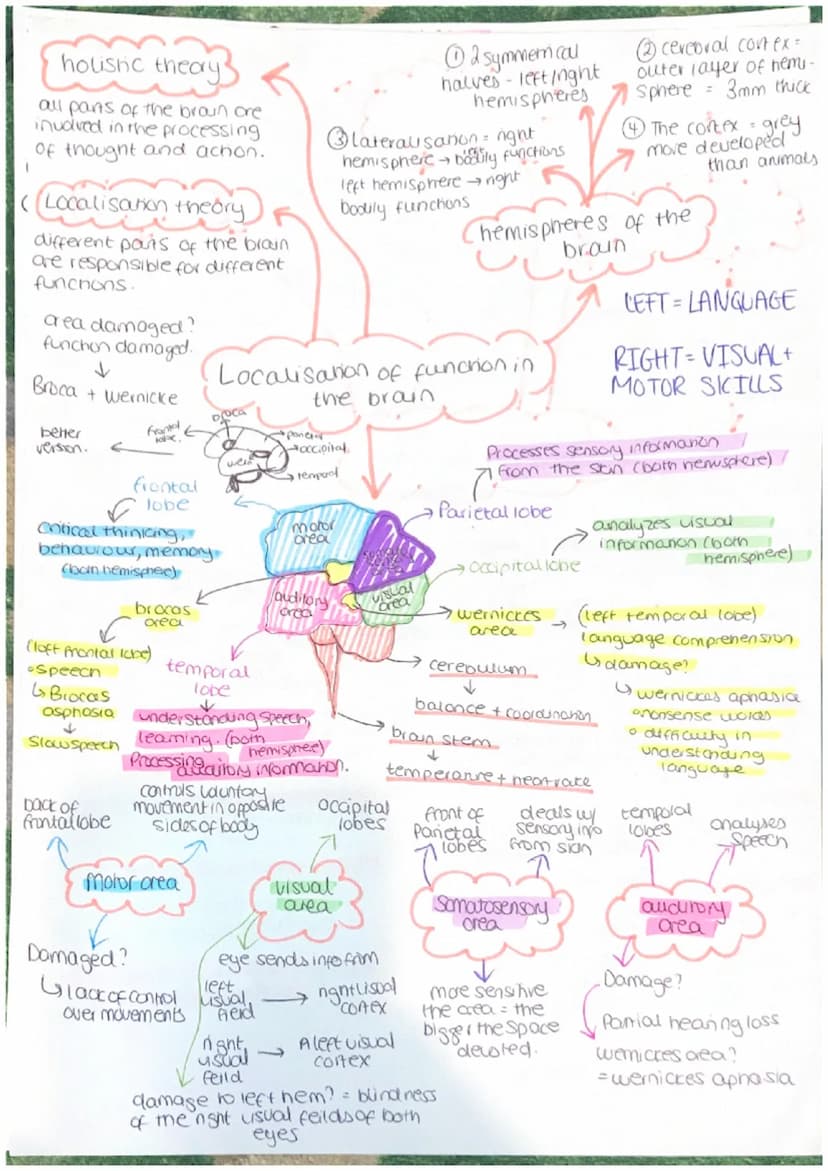 holistic theory
all parts of the brain are
involved in the processing
of thought and action.
Localisation theory
different parts of the brain
are responsible for different
functions.
area damaged?
function damaged.
Broca + wernicke
better
version.
① 2 symmetrical
halves - left/right
hemispheres
② cerebral cortex =
outer layer of hemi-
sphere = 3mm thick
③ Lateralisation = right
hemisphere → left bodily functions
left hemisphere → right
bodily functions
④ The cortex = grey
more developed
than animals
hemispheres of the
brain
LEFT = LANGUAGE
RIGHT = VISUAL +
MOTOR SKILLS
Localisation of function in
the brain
broca
frontal
lobe.
parietal
occipital
wern
temporal
frontal
lobe
critical thinking,
behaviour, memory
(both hemisphere)
motor
area
auditory
area
visual
area
Processes sensory information
from the skin (both hemisphere)
Parietal lobe
analyzes visual
information (both
hemisphere)
occipital lobe
brocas
area
(left frontal lobe)
◦ Speech
↳ Brocas
asphasia
↓
slow speech
temporal
lobe
understanding speech,
learning. (both
hemisphere)
Processing
auditory information.
wernickes
area
→ (left temporal lobe)
language comprehension
↳ damage?
↳ wernickes aphasia
◦ nonsense words
◦ difficulty in
understanding
language
cerebulum
↓
balance + coordination
brain stem
↓
temperature + heart rate
back of
frontal lobe
controls voluntary
movement in opposite
sides of body
motor area
Damaged?
↳ lack of control
over movements
occipital
lobes
visual
area
eye sends info from
left
visual
field → right visual
cortex
right
visual
feild → A left visual
cortex
damage to left hem? = blindness
of the right visual feilds of both
eyes
front of
Parietal
lobes
deals w/
sensory info
from skin
somatosensory
area
more sensitive
the area = the
bigger the space
devoted.
temporal
lobes
analyses
speech
auditory
area
Damage?
Partial hearing loss
wernickes area?
= wernickes aphasia